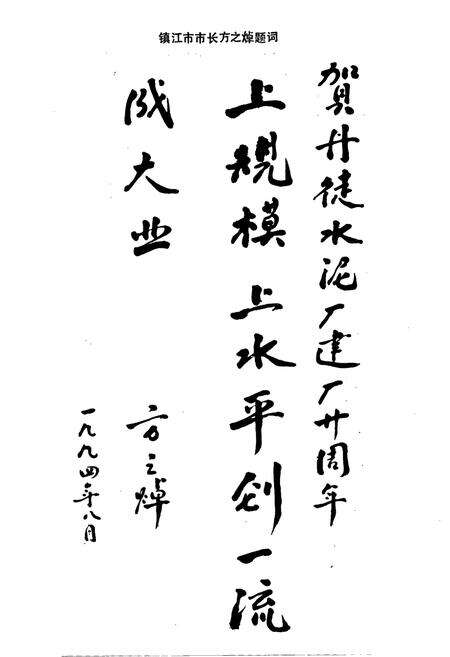 镇江市市长方之焯题词
贺丹徒水泥厂建厂廿周年
上规模上水平创一流
成大业
方之焯
一九九四年八月